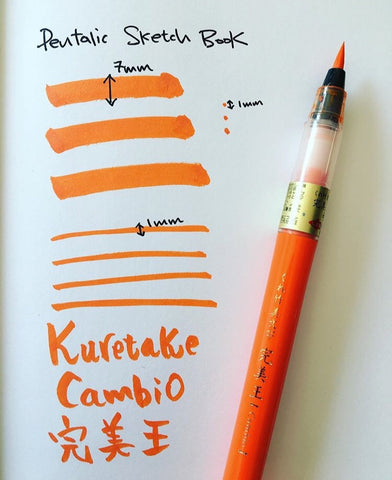 Pentalic Sketch Book
7mm
1mm
1mm
Kuretake
Cambio
完美王
完美王